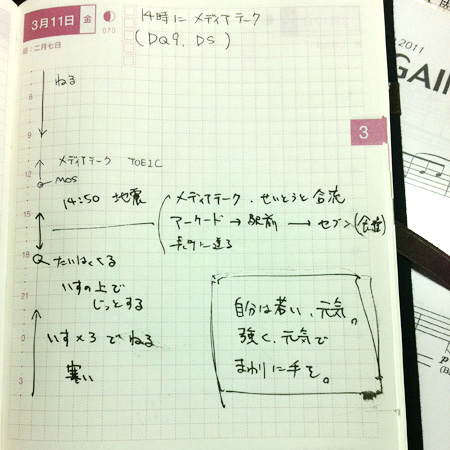 3月11日 金
070
旧：二月七日
14時に メディアテーク
(DQ9、DS)
6
ねる
9
12
メディアテーク TOEIC
MOS
15
14:50 地震
メディアテーク、せいとうと 合流
アーケード → 駅前 → セブン (食料)
18
たいはくくる
いすの上で
じっとする
21
0
いす×3 で ねる
寒い
3
自分は若い、元気。
強く、元気で
まわりに手を。
3
2011
GAI